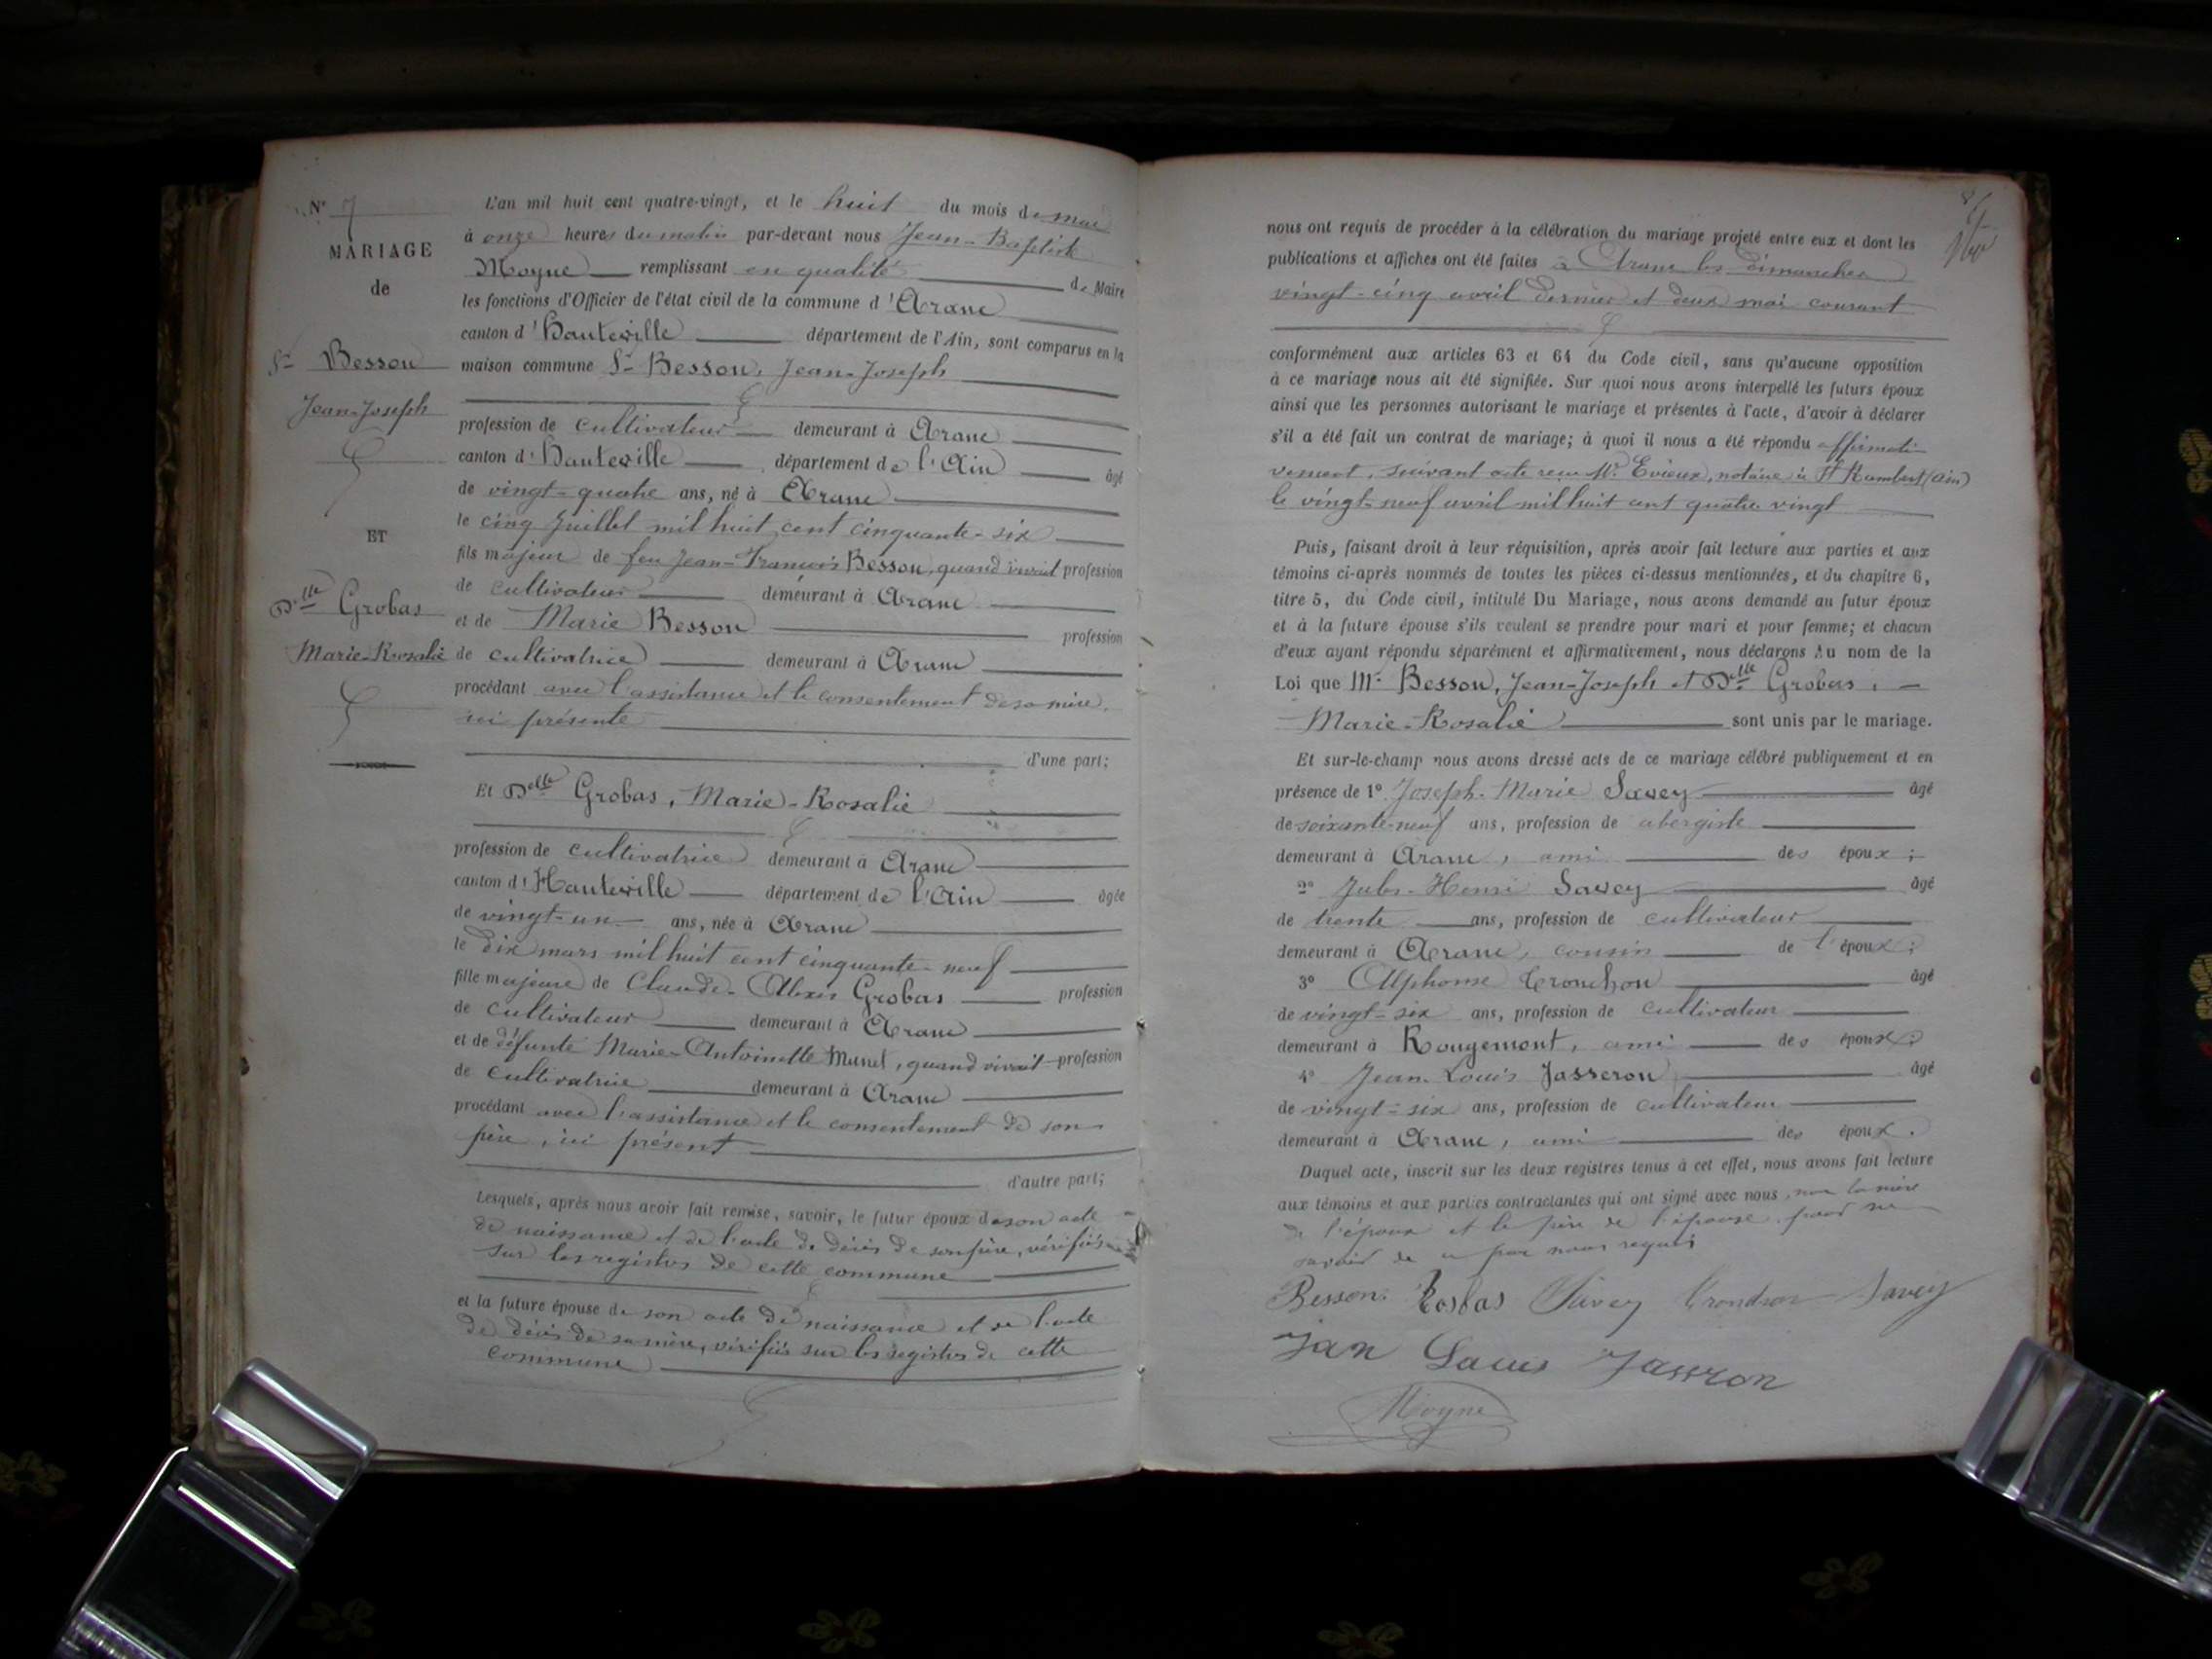 N° 7
MARIAGE
de
Sr Besson
Jean-Joseph
ET
Delle Grobas
Marie-Rosalie
L'an mil huit cent quatre-vingt, et le huit du mois de mai
à onze heures du matin par-devant nous Jean-Baptiste
Moyne remplissant en qualité de Maire
les fonctions d'Officier de l'état civil de la commune d'Aranc
canton d'Hauteville département de l'Ain, sont comparus en la
maison commune Sr Besson, Jean-Joseph
profession de cultivateur demeurant à Aranc
canton d'Hauteville département de l'Ain âgé
de vingt-quatre ans, né à Aranc
le cinq Juillet mil huit cent cinquante-six
fils majeur de feu Jean-François Besson, quand vivait profession
de cultivateur demeurant à Aranc
et de Marie Besson profession
de cultivatrice demeurant à Aranc
procédant avec l'assistance et le consentement de sa mère,
ici présente
d'une part;
Et Delle Grobas, Marie-Rosalie
profession de cultivatrice demeurant à Aranc
canton d'Hauteville département de l'Ain âgée
de vingt-un ans, née à Aranc
le dix mars mil huit cent cinquante-neuf
fille majeure de Claude-Alexis Grobas profession
de cultivateur demeurant à Aranc
et de défunte Marie-Antoinette Munet, quand vivait profession
de cultivatrice demeurant à Aranc
procédant avec l'assistance et le consentement de son
père, ici présent
d'autre part;
Lesquels, après nous avoir fait remise, savoir, le futur époux de son acte
de naissance et de l'acte de décès de son père, vérifiés
sur les registres de cette commune
et la future épouse de son acte de naissance et de l'acte
de décès de sa mère, vérifiés sur les registres de cette
commune
nous ont requis de procéder à la célébration du mariage projeté entre eux et dont les
publications et affiches ont été faites à Aranc les dimanches
vingt-cinq avril dernier et deux mai courant
conformément aux articles 63 et 64 du Code civil, sans qu'aucune opposition
à ce mariage nous ait été signifiée. Sur quoi nous avons interpellé les futurs époux
ainsi que les personnes autorisant le mariage et présentes à l'acte, d'avoir à déclarer
s'il a été fait un contrat de mariage; à quoi il nous a été répondu affirmati-
vement, suivant acte reçu Me Evieux, notaire à St Rambert (Ain)
le vingt-neuf avril mil huit cent quatre vingt
Puis, faisant droit à leur réquisition, après avoir fait lecture aux parties et aux
témoins ci-après nommés de toutes les pièces ci-dessus mentionnées, et du chapitre 6,
titre 5, du Code civil, intitulé Du Mariage, nous avons demandé au futur époux
et à la future épouse s'ils veulent se prendre pour mari et pour femme; et chacun
d'eux ayant répondu séparément et affirmativement, nous déclarons Au nom de la
Loi que Mr Besson, Jean-Joseph et Delle Grobas,
Marie-Rosalie sont unis par le mariage.
Et sur-le-champ nous avons dressé acts de ce mariage célébré publiquement et en
présence de 1° Joseph-Marie Savey âgé
de soixante-neuf ans, profession de abergiste
demeurant à Aranc, ami des époux;
2° Jules-Henri Savey âgé
de trente ans, profession de cultivateur
demeurant à Aranc, cousin de l'époux;
3° Alphonse Tronchon âgé
de vingt-six ans, profession de cultivateur
demeurant à Rougemont, ami des époux;
4° Jean-Louis Jasseron âgé
de vingt-six ans, profession de cultivateur
demeurant à Aranc, ami des époux.
Duquel acte, inscrit sur les deux registres tenus à cet effet, nous avons fait lecture
aux témoins et aux parties contractantes qui ont signé avec nous, non la mère
de l'époux et le père de l'épouse pour ne
savoir de ce par nous requis
Besson Savey Savey
Jan Laues Jassron
Moyne